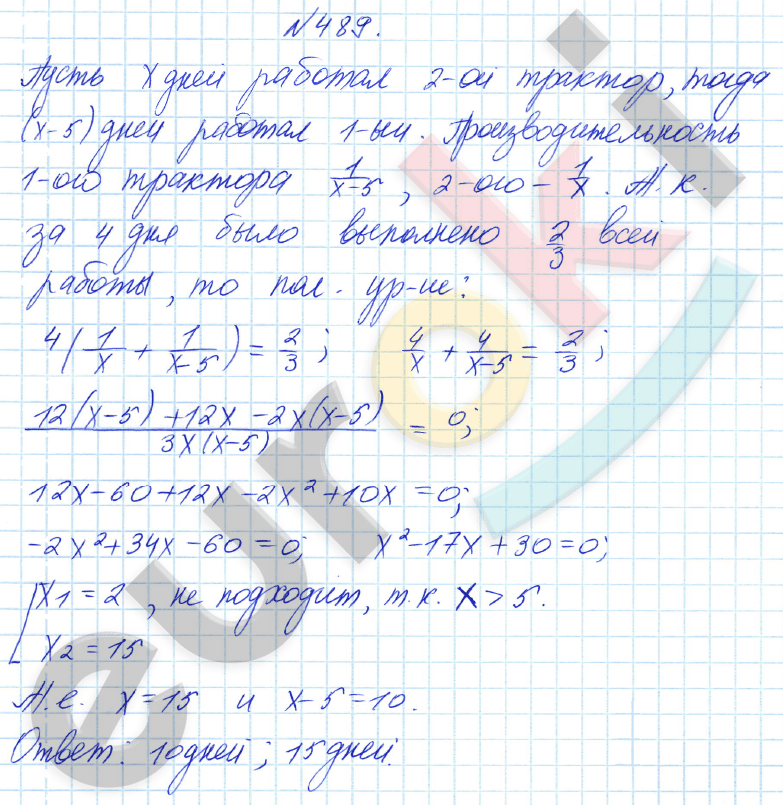 №489.
Пусть x дней работал 2-ой трактор, тогда
(x-5) дней работал 1-ый. Производительность
1-ого трактора 1/(x-5), 2-ого - 1/x. Т.к.
за 4 дня было выполнено 2/3 всей
работы, то пол. ур-ие:
4(1/x + 1/(x-5)) = 2/3; 4/x + 4/(x-5) = 2/3;
(12(x-5)+12x-2x(x-5))/(3x(x-5)) = 0;
12x-60+12x-2x²+10x=0;
-2x²+34x-60=0; x²-17x+30=0;
[x1=2, не подходит, т.к. x>5.
x2=15
Т.е. x=15 и x-5=10.
Ответ: 10 дней; 15 дней.
euroki